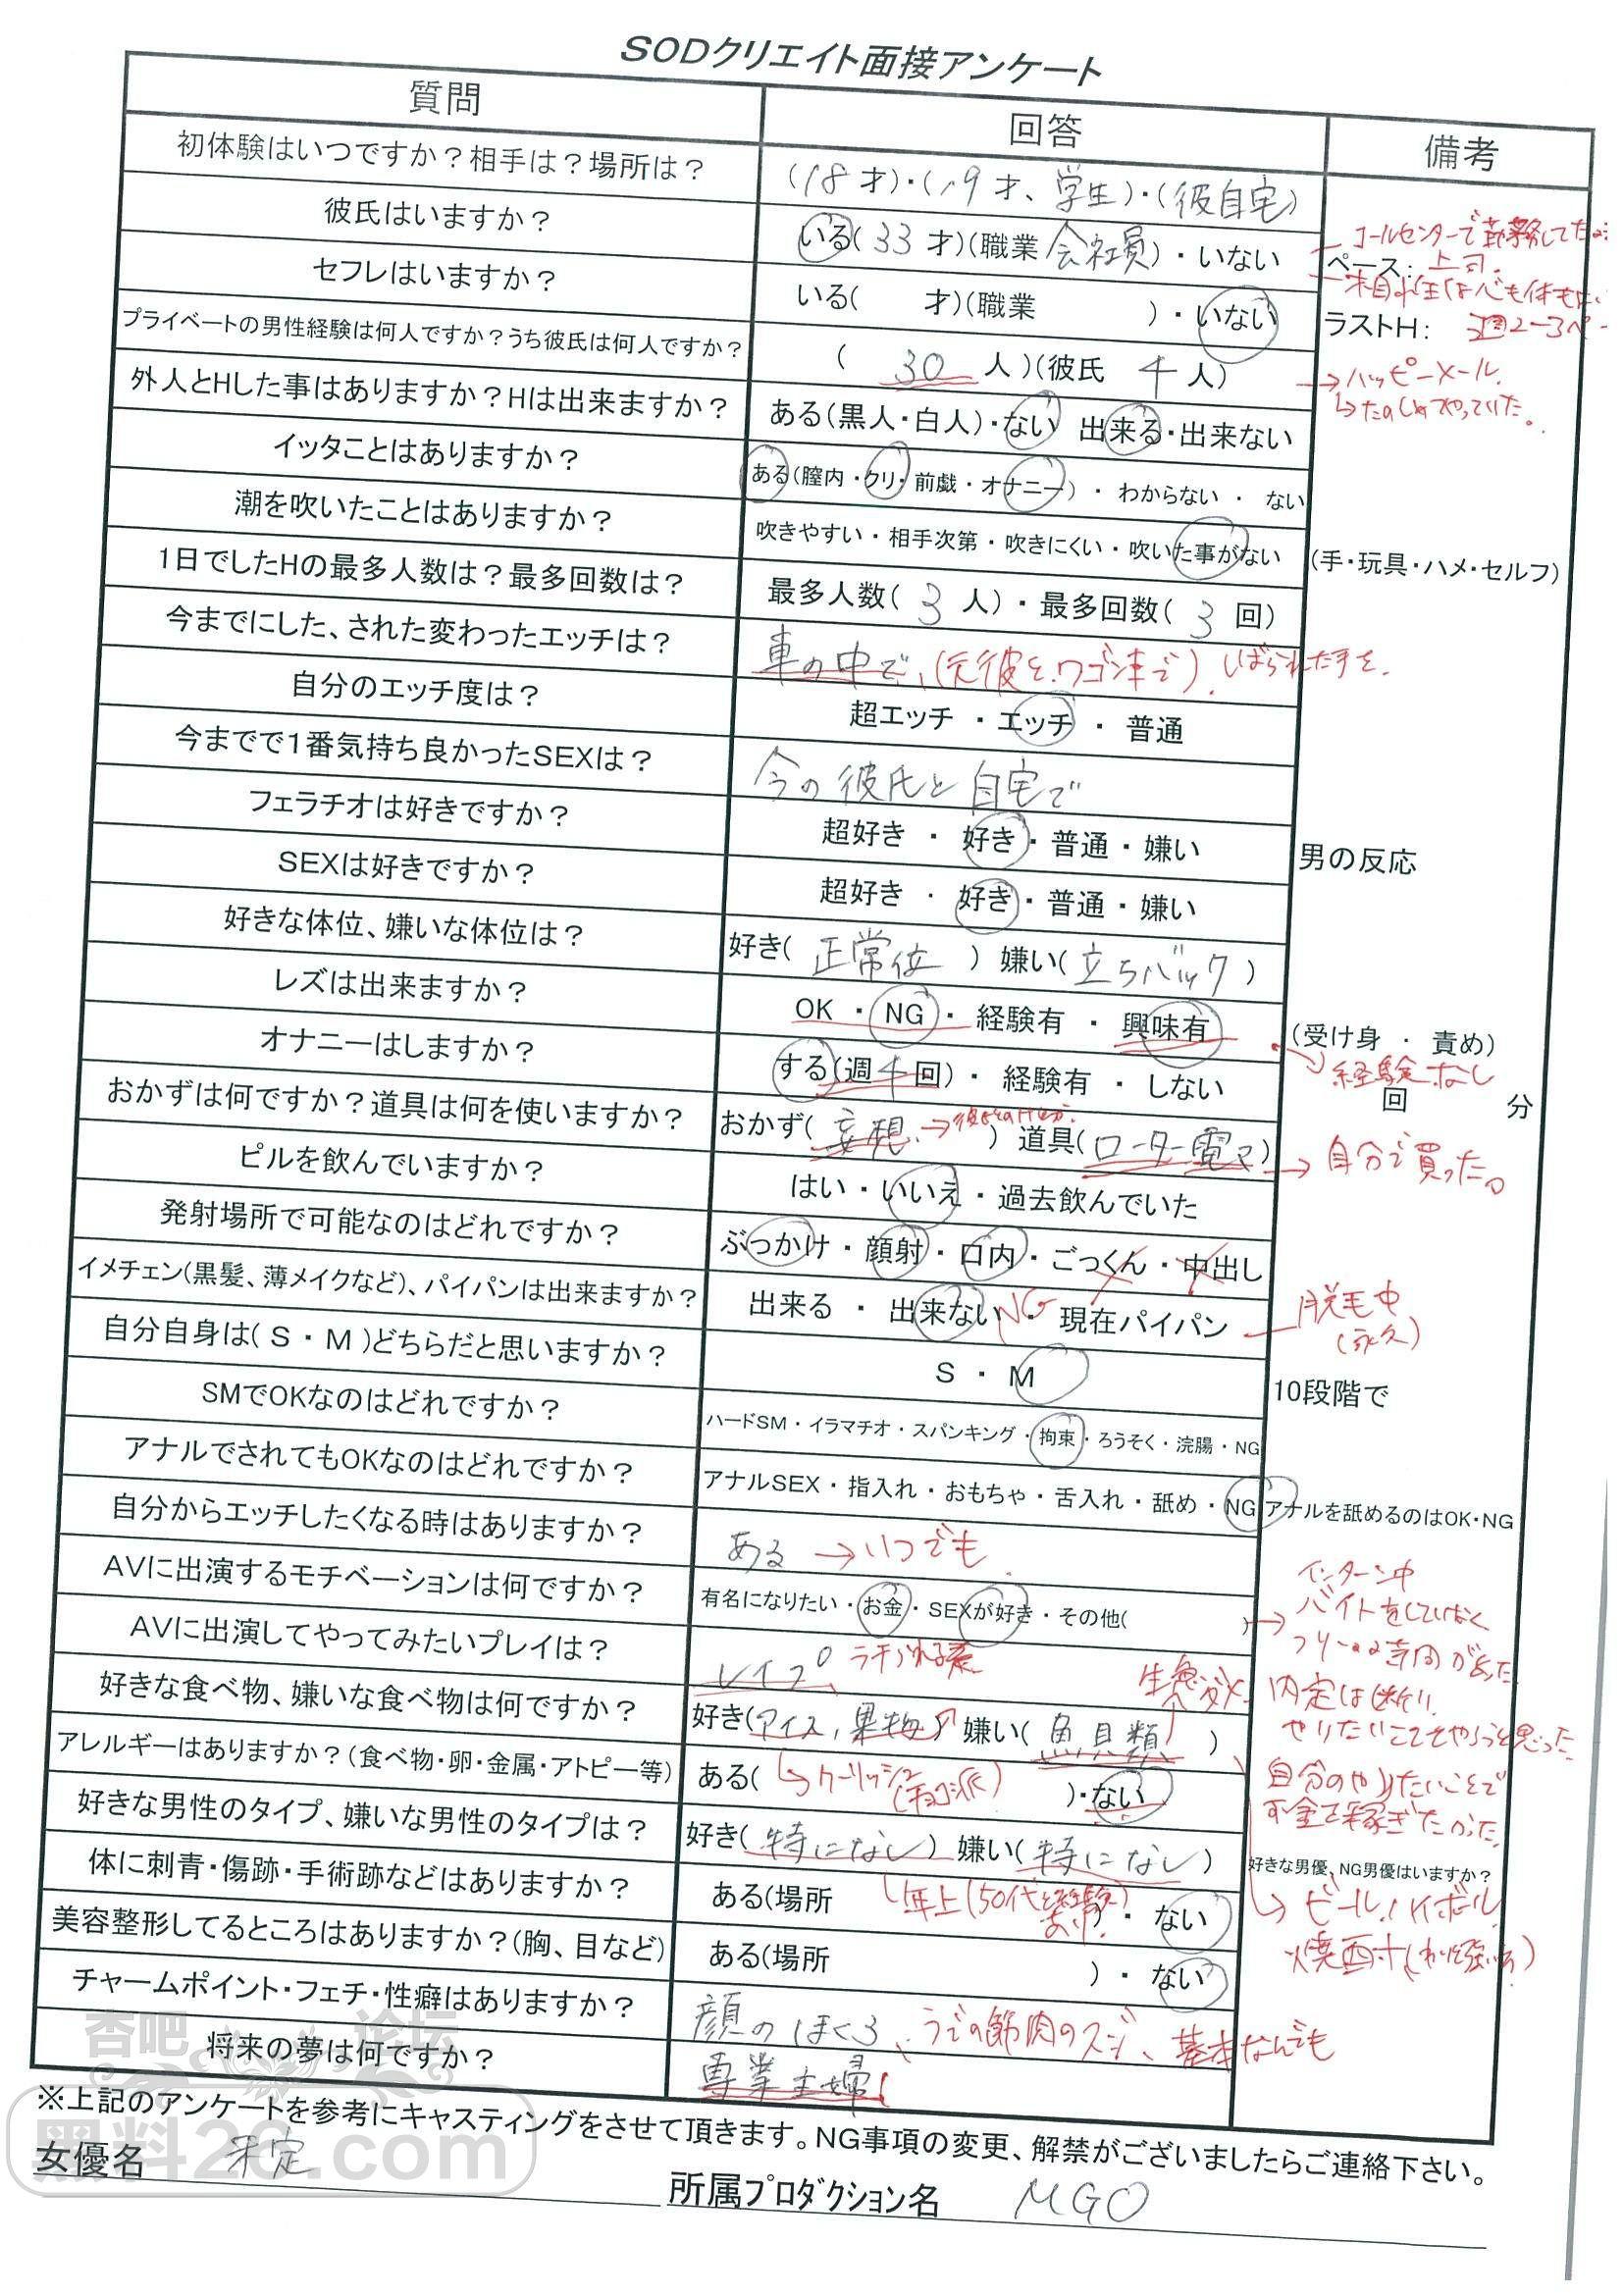 SODクリエイト面接アンケート
質問 回答 備考
初体験はいつですか？相手は？場所は？ (18才)・(19才、学生)・(彼自宅)
彼氏はいますか？ いる(33才)(職業 会社員)・いない
コールセンターで勤務してた
ペース： 上司。
セフレはいますか？ いる( 才)(職業 )・いない
相性は心も体も
ラストH： 週2-3ペ
プライベートの男性経験は何人ですか？うち彼氏は何人ですか？ ( 30 人)(彼氏 4 人)
→ハッピーメール。
外人とHした事はありますか？Hは出来ますか？ ある(黒人・白人)・ない 出来る・出来ない
イッタことはありますか？ ある(膣内・クリ・前戯・オナニー)・わからない・ない
潮を吹いたことはありますか？ 吹きやすい・相手次第・吹きにくい・吹いた事がない (手・玩具・ハメ・セルフ)
1日でしたHの最多人数は？最多回数は？ 最多人数( 3 人)・最多回数( 3 回)
今までにした、された変わったエッチは？ 車の中で、(元彼と、ワゴン車で)、しばられた手を。
自分のエッチ度は？ 超エッチ・エッチ・普通
今までで1番気持ち良かったSEXは？ 今の彼氏と自宅で
フェラチオは好きですか？ 超好き・好き・普通・嫌い 男の反応
SEXは好きですか？ 超好き・好き・普通・嫌い
好きな体位、嫌いな体位は？ 好き( 正常位 ) 嫌い( 立ちバック )
レズは出来ますか？ OK・NG・経験有・興味有 (受け身・責め)
→経験なし
オナニーはしますか？ する(週4回)・経験有・しない 回 分
おかずは何ですか？道具は何を使いますか？ おかず( 妄想 ) 道具( ローター電マ )
→自分で買った。
ピルを飲んでいますか？ はい・いいえ・過去飲んでいた
発射場所で可能なのはどれですか？ ぶっかけ・顔射・口内・ごっくん・中出し
イメチェン(黒髪、薄メイクなど)、パイパンは出来ますか？ 出来る・出来ない NG・現在パイパン
脱毛中
(永久)
自分自身は( S・M )どちらだと思いますか？ S・M 10段階で
SMでOKなのはどれですか？ ハードSM・イラマチオ・スパンキング・拘束・ろうそく・浣腸・NG
アナルでされてもOKなのはどれですか？ アナルSEX・指入れ・おもちゃ・舌入れ・舐め・NG アナルを舐めるのはOK・NG
自分からエッチしたくなる時はありますか？ ある→いつでも
AVに出演するモチベーションは何ですか？ 有名になりたい・お金・SEXが好き・その他( )
インターン中
バイトをしていなく
フリーな時間があった
AVに出演してやってみたいプレイは？ レイプ
内定は断り
やりたいことをやろうと思った
好きな食べ物、嫌いな食べ物は何ですか？ 好き(アイス、果物) 嫌い( 魚貝類 )
アレルギーはありますか？(食べ物・卵・金属・アトピー等) ある( )・ない
クーリッシュ
自分のやりたいことで
お金を稼ぎたかった
好きな男性のタイプ、嫌いな男性のタイプは？ 好き( 特になし ) 嫌い( 特になし ) 好きな男優、NG男優はいますか？
体に刺青・傷跡・手術跡などはありますか？ ある(場所 )・ない
年上(50代と経験あり)
→ビール、ハイボール
焼酎
美容整形してるところはありますか？(胸、目など) ある(場所 )・ない
チャームポイント・フェチ・性癖はありますか？ 顔のほくろ、うでの筋肉のスジ、基本なんでも
将来の夢は何ですか？ 専業主婦
※上記のアンケートを参考にキャスティングをさせて頂きます。NG事項の変更、解禁がございましたらご連絡下さい。
女優名 未定
所属プロダクション名 MGO
杏吧 论坛
黑料20.com